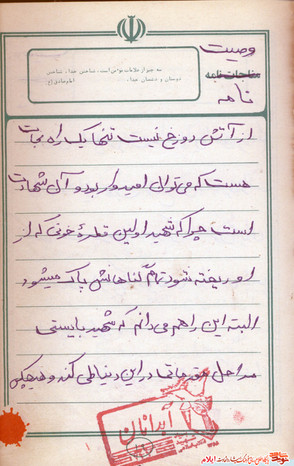 وصیت
مناجات نامه
نامه
سه چیز از علامات مؤمن است، شناختن خدا، شناختن
دوستان و دشمنان خدا.
امام صادق (ع)
از آتش دوزخ نیست تنها یک راه نجات
هست که می توان امیدوار بود و آن شهادت
است چرا که شهید اولین قطره خونی که از
او ریخته شود تمام گناهانش پاک میشود
البته این را هم می دانم که شهید بایستی
مراحل در این دنیا طی کند و هیچکس
آبدانان
ایلام